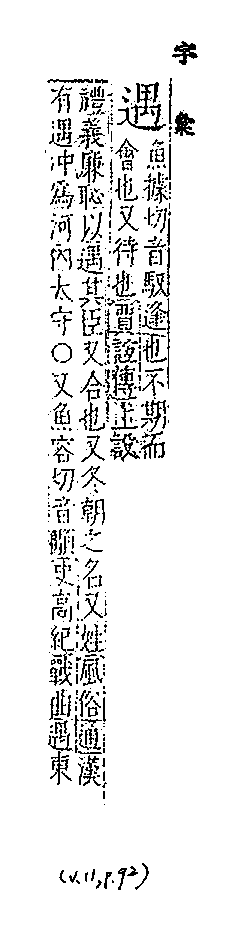 字彙
遇 魚據切音馭逢也不期而
會也又待也賈誼傳主設
禮義廉恥以遇其臣又合也又冬朝之名又姓風俗通漢
有遇冲為河內太守○又魚容切音顒史高紀戰曲遇東
(v.11, p.92)